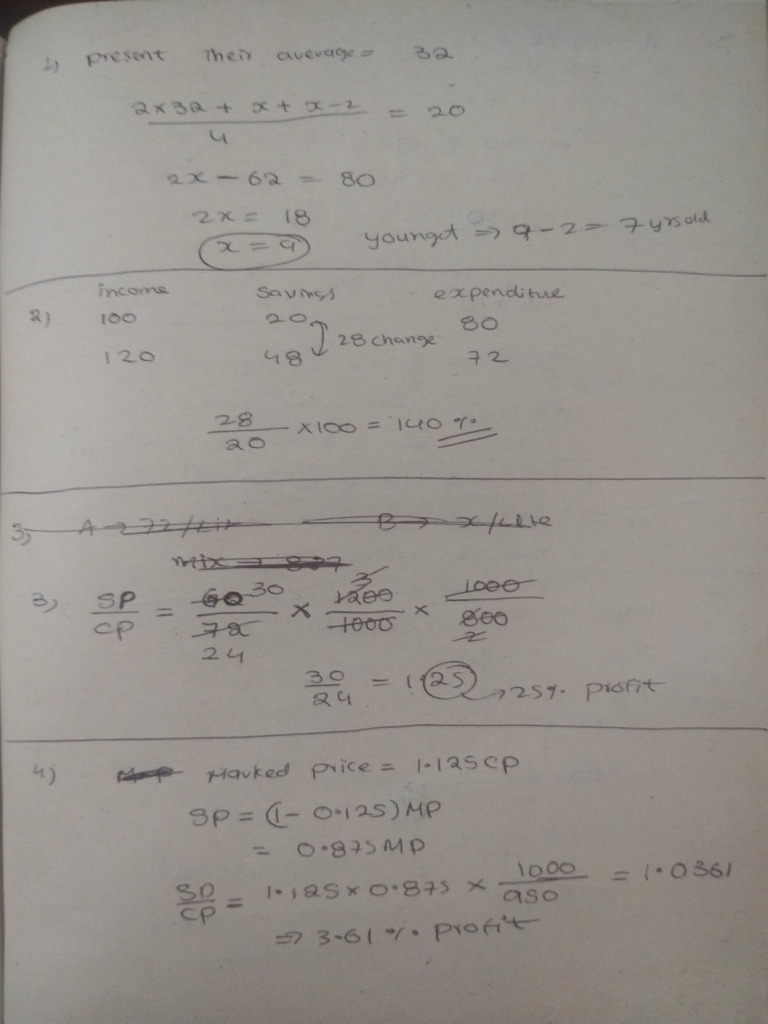 1) present their average = 32
2×32 + x + x-2 / 4 = 20
2x - 62 = 80
2x = 18
x = 9 youngst => 9-2 = 7 yrs old
income savings expenditue
2) 100 20 80
28 change
120 48 72
28/20 ×100 = 140 %
3) A → 72/Lit B → x/Lite
mix →
3) SP/CP = 60 30/72 24 × 1200 3/1000 × 1000/800 2
30/24 = 1.25 → 25% profit
4) MP Marked price = 1.125 CP
SP = (1 - 0.125) MP
= 0.875 MP
SP/CP = 1.125 × 0.875 × 1000/950 = 1.0361
=> 3.61 % profit